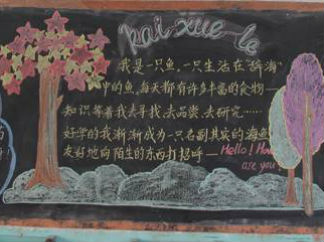 kai xue le
我是一只鱼,一只生活在"辞海"
中的鱼,每天都有许多丰富的食物—
知识等着我去寻找、去品尝、去研究……
好学的我渐渐成为一只名副其实的海鱼
友好地向陌生的东西打招呼—Hello! How
are you?